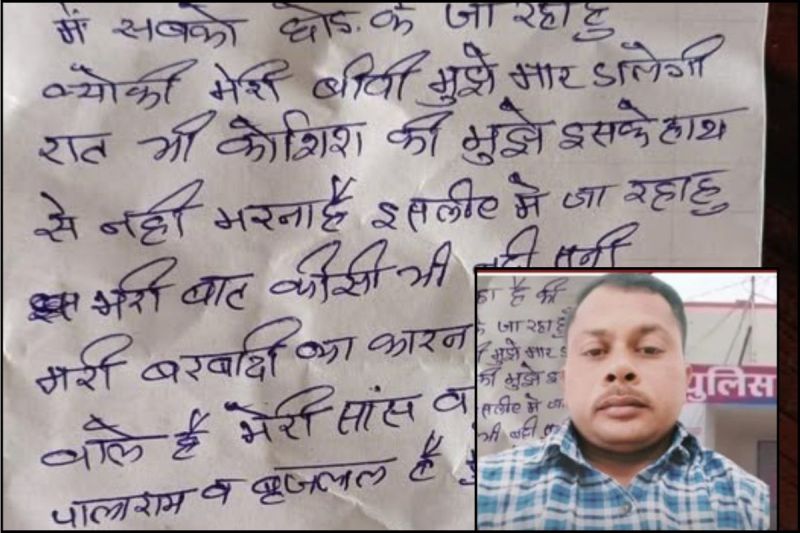 में सबको छोड. के जा रहा हु
क्योकी मेरी बीवी मुझे मार डालेगी
रात भी कोशिश की मुझे इसके हाथ
से नही मरना है इसलीए मे जा रहा हु
मेरी बात कीसी भी नही सुनी
मेरी बरबादी का कारन
वाले है मेरी सांस व
पालाराम व बृजलाल है
हा है की
के जा रहा हु
मुझे मार ड
की मुझे इ
सलीए मे जा
भी नही सु
पुलिस